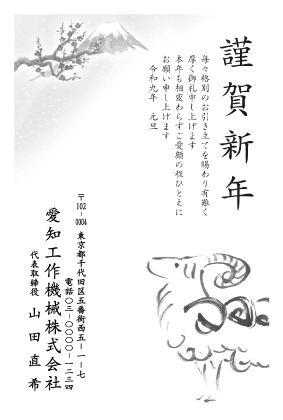 謹賀新年
毎々格別のお引き立てを賜わり有難く
厚く御礼申し上げます
本年も相変わらずご愛顧の程ひとえに
お願い申し上げます
令和九年　元旦
〒102-0004
東京都千代田区五番街西五-一-七
電話〇三-〇〇〇〇-一二三四
愛知工作機械株式会社
代表取締役　山田直希